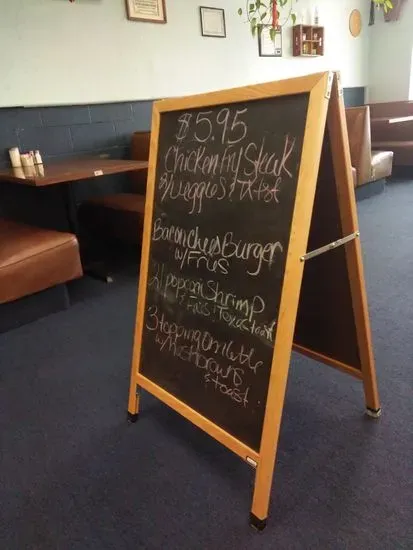 $5.95
Chicken Fry Steak
w/veggies & Txtst
Bacon chees Burger
w/ Fries
popcorn Shrimp
Fries & Texas toast
3 topping Omlette
w/ Hashbrowns
& toast